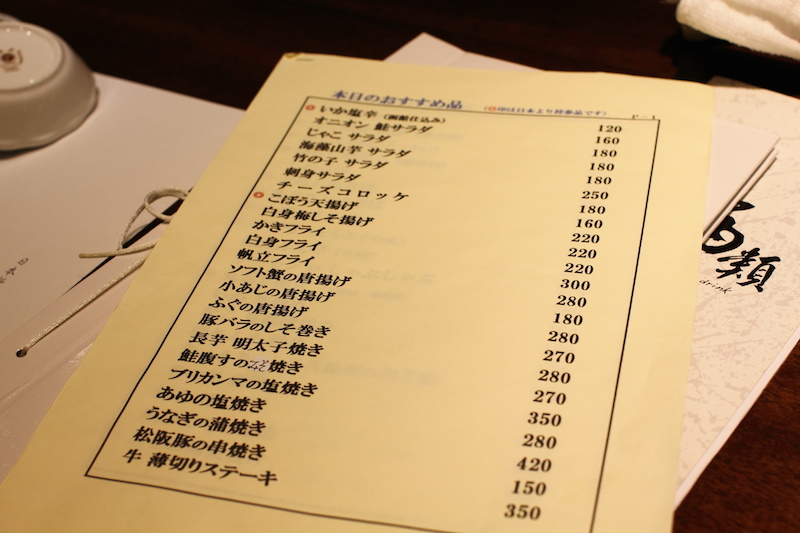 本日のおすすめ品 (◎印は日本より持参品です) P-1
いか塩辛 (函館仕込み) 120
オニオン 鮭サラダ 160
じゃこ サラダ 180
海藻山芋 サラダ 180
竹の子 サラダ 180
刺身サラダ 250
チーズコロッケ 180
こぼう天揚げ 160
白身梅しそ揚げ 220
かきフライ 220
白身フライ 220
帆立フライ 300
ソフト蟹の唐揚げ 280
小あじの唐揚げ 180
ふぐの唐揚げ 280
豚バラのしそ巻き 270
長芋 明太子焼き 280
鮭腹すの焼き 270
ブリカンマの塩焼き 350
あゆの塩焼き 280
うなぎの蒲焼き 420
松阪豚の串焼き 150
牛 薄切りステーキ 350
類
drink